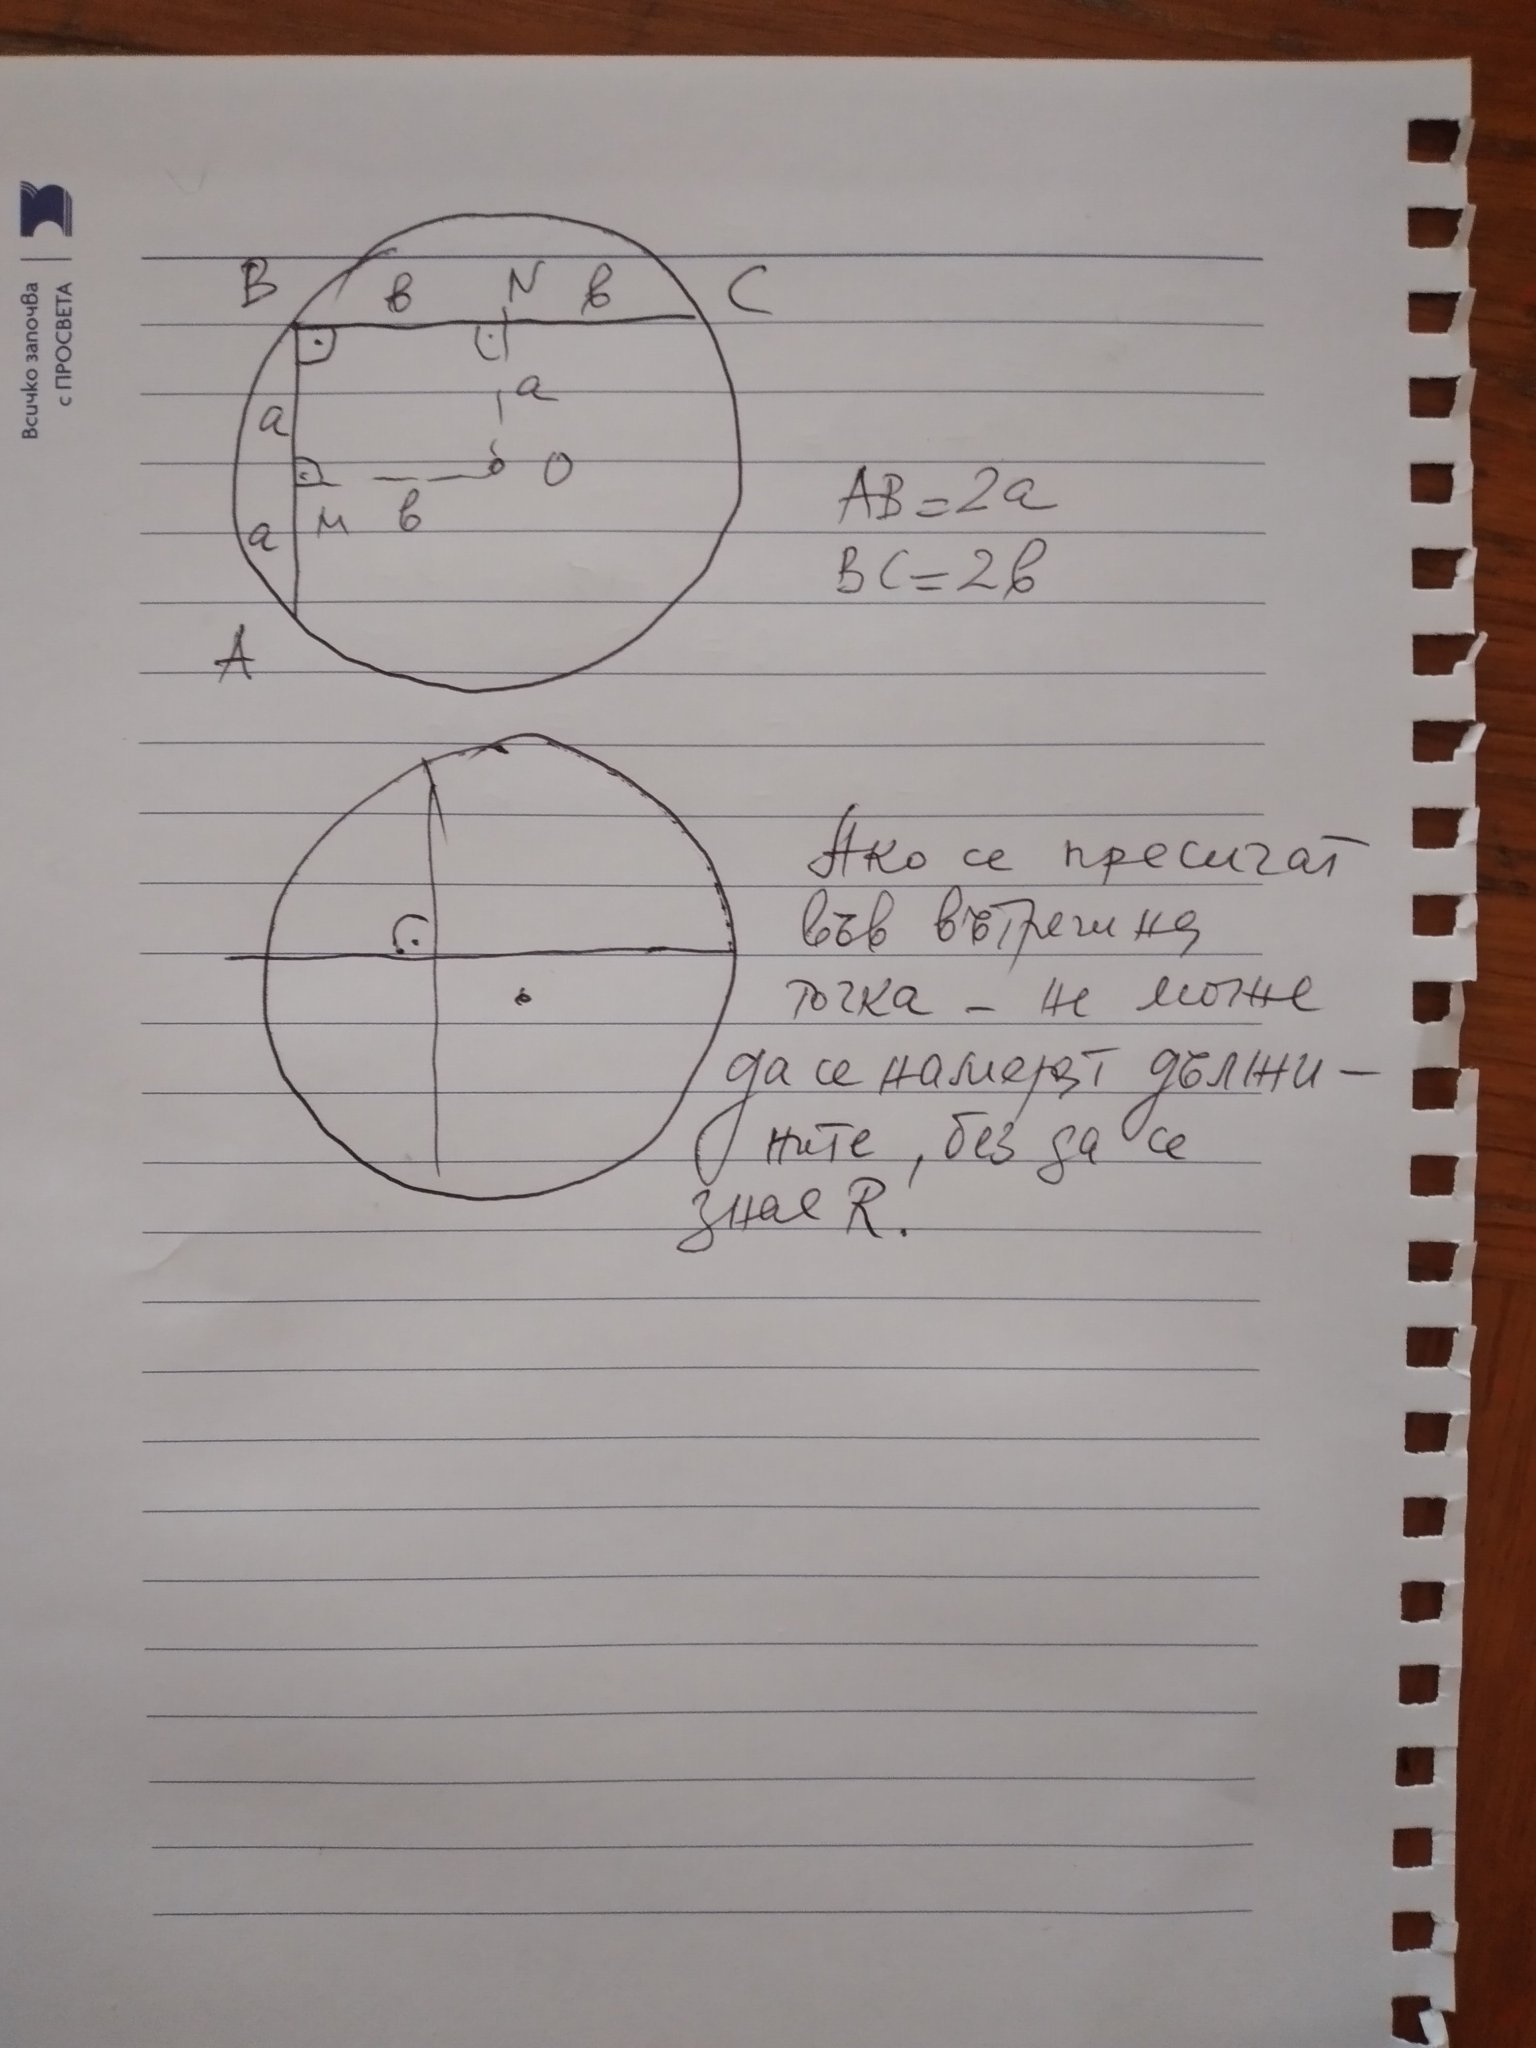 Всичко започва
с ПРОСВЕТА
B в N в C
a
a O
M в
a
A
AB=2a
BC=2в
Ако се пресичат
във вътрешна
точка – не може
да се намерят дължи–
ните, без да се
знае R.